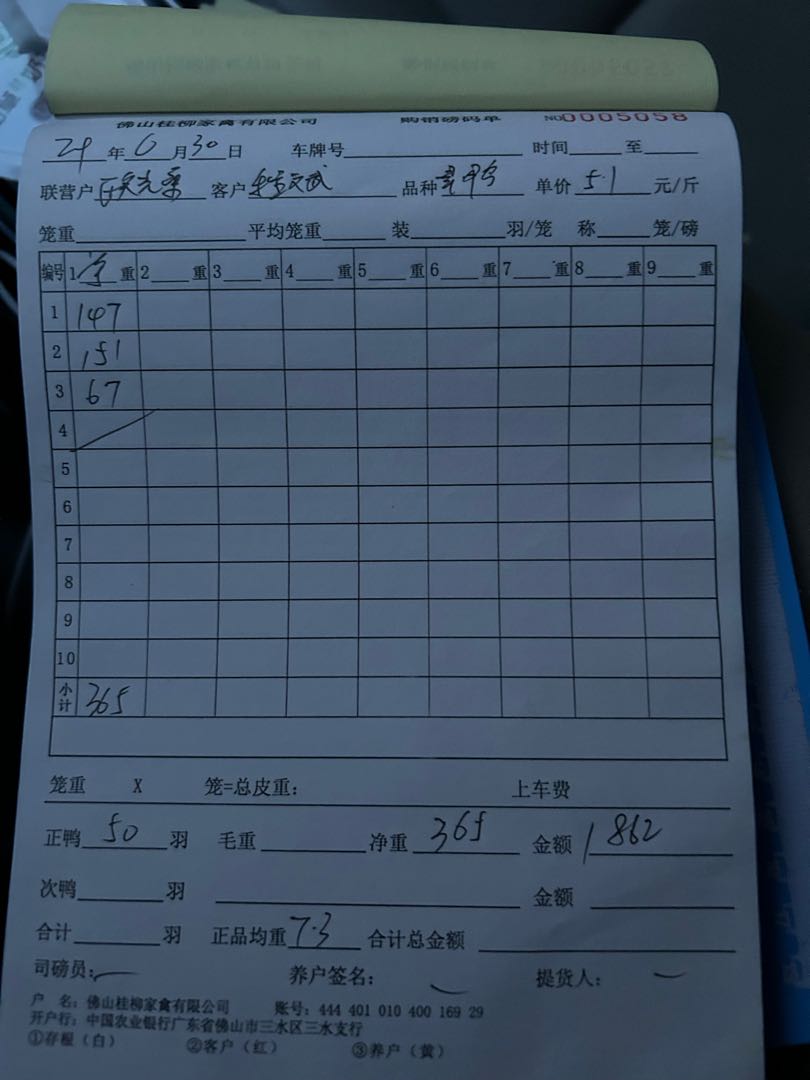 佛山桂柳家禽有限公司 购销磅码单 NO0005058
24年6月30日 车牌号 时间 至
联营户 客户 文武 品种 单价 5.1 元/斤
笼重 平均笼重 装 羽/笼 称 笼/磅
编号 1 重 2 重 3 重 4 重 5 重 6 重 7 重 8 重 9 重
1 147
2 151
3 67
4
5
6
7
8
9
10
小计 365
笼重 X 笼=总皮重: 上车费
正鸭 50 羽 毛重 净重 365 金额 1862
次鸭 羽 金额
合计 羽 正品均重 7.3 合计总金额
司磅员: 养户签名: 提货人:
户 名: 佛山桂柳家禽有限公司 账号: 444 401 010 400 169 29
开户行: 中国农业银行广东省佛山市三水区三水支行
①存根(白) ②客户(红) ③养户(黄)